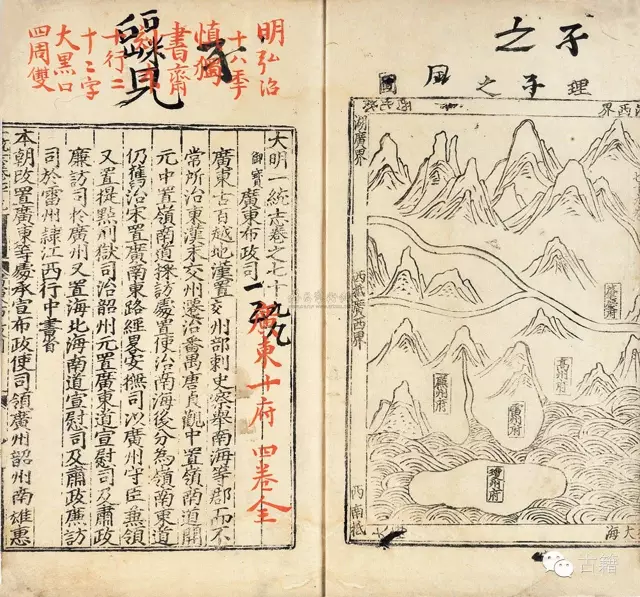 之
理
之
國
江西界
湖廣界
西抵廣西界
高州府
雷州府
瓊州府
西南抵
大海
明弘治
十八季
慎獨
書齋
十行二
十二字
大黑口
四周雙
大明一統志卷之七十九
廣東布政司
廣東十府 四卷全
廣東古百越地漢置交州部刺史察舉南海等郡而不
常所治東漢末交州遷治番禺唐貞觀中置嶺南道開
元中置嶺南道採訪處置使治南海後分為嶺南東道
仍舊治宋置廣南東路經畧安撫司以廣州守臣兼領
又置提點刑獄司治韶州元置廣東道宣慰司及肅政
廉訪司於廣州又置海北海南道宣慰司及肅政廉訪
司於雷州隸江西行中書省
本朝改置廣東等處承宣布政使司領廣州韶州南雄惠
古籍